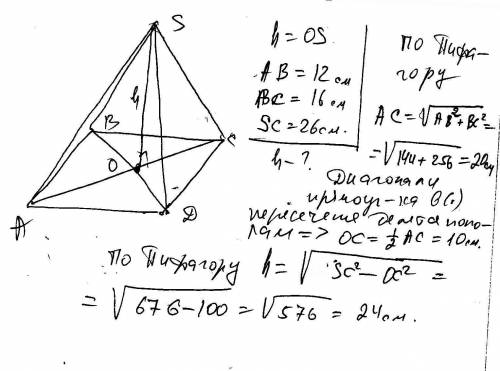 S
h
B
O
C
A
D
h = OS
AB = 12 см
BC = 16 см
SC = 26 см.
h - ?
по Пифа-
гору
AC = √AB²+BC² =
= √144 + 256 = 20см
Диагонали
прямоуг-ка в(.)
пересечения делятся попо-
лам => OC = ½ AC = 10см.
По Пифагору h = √SC² - OC² =
= √676 - 100 = √576 = 24см.